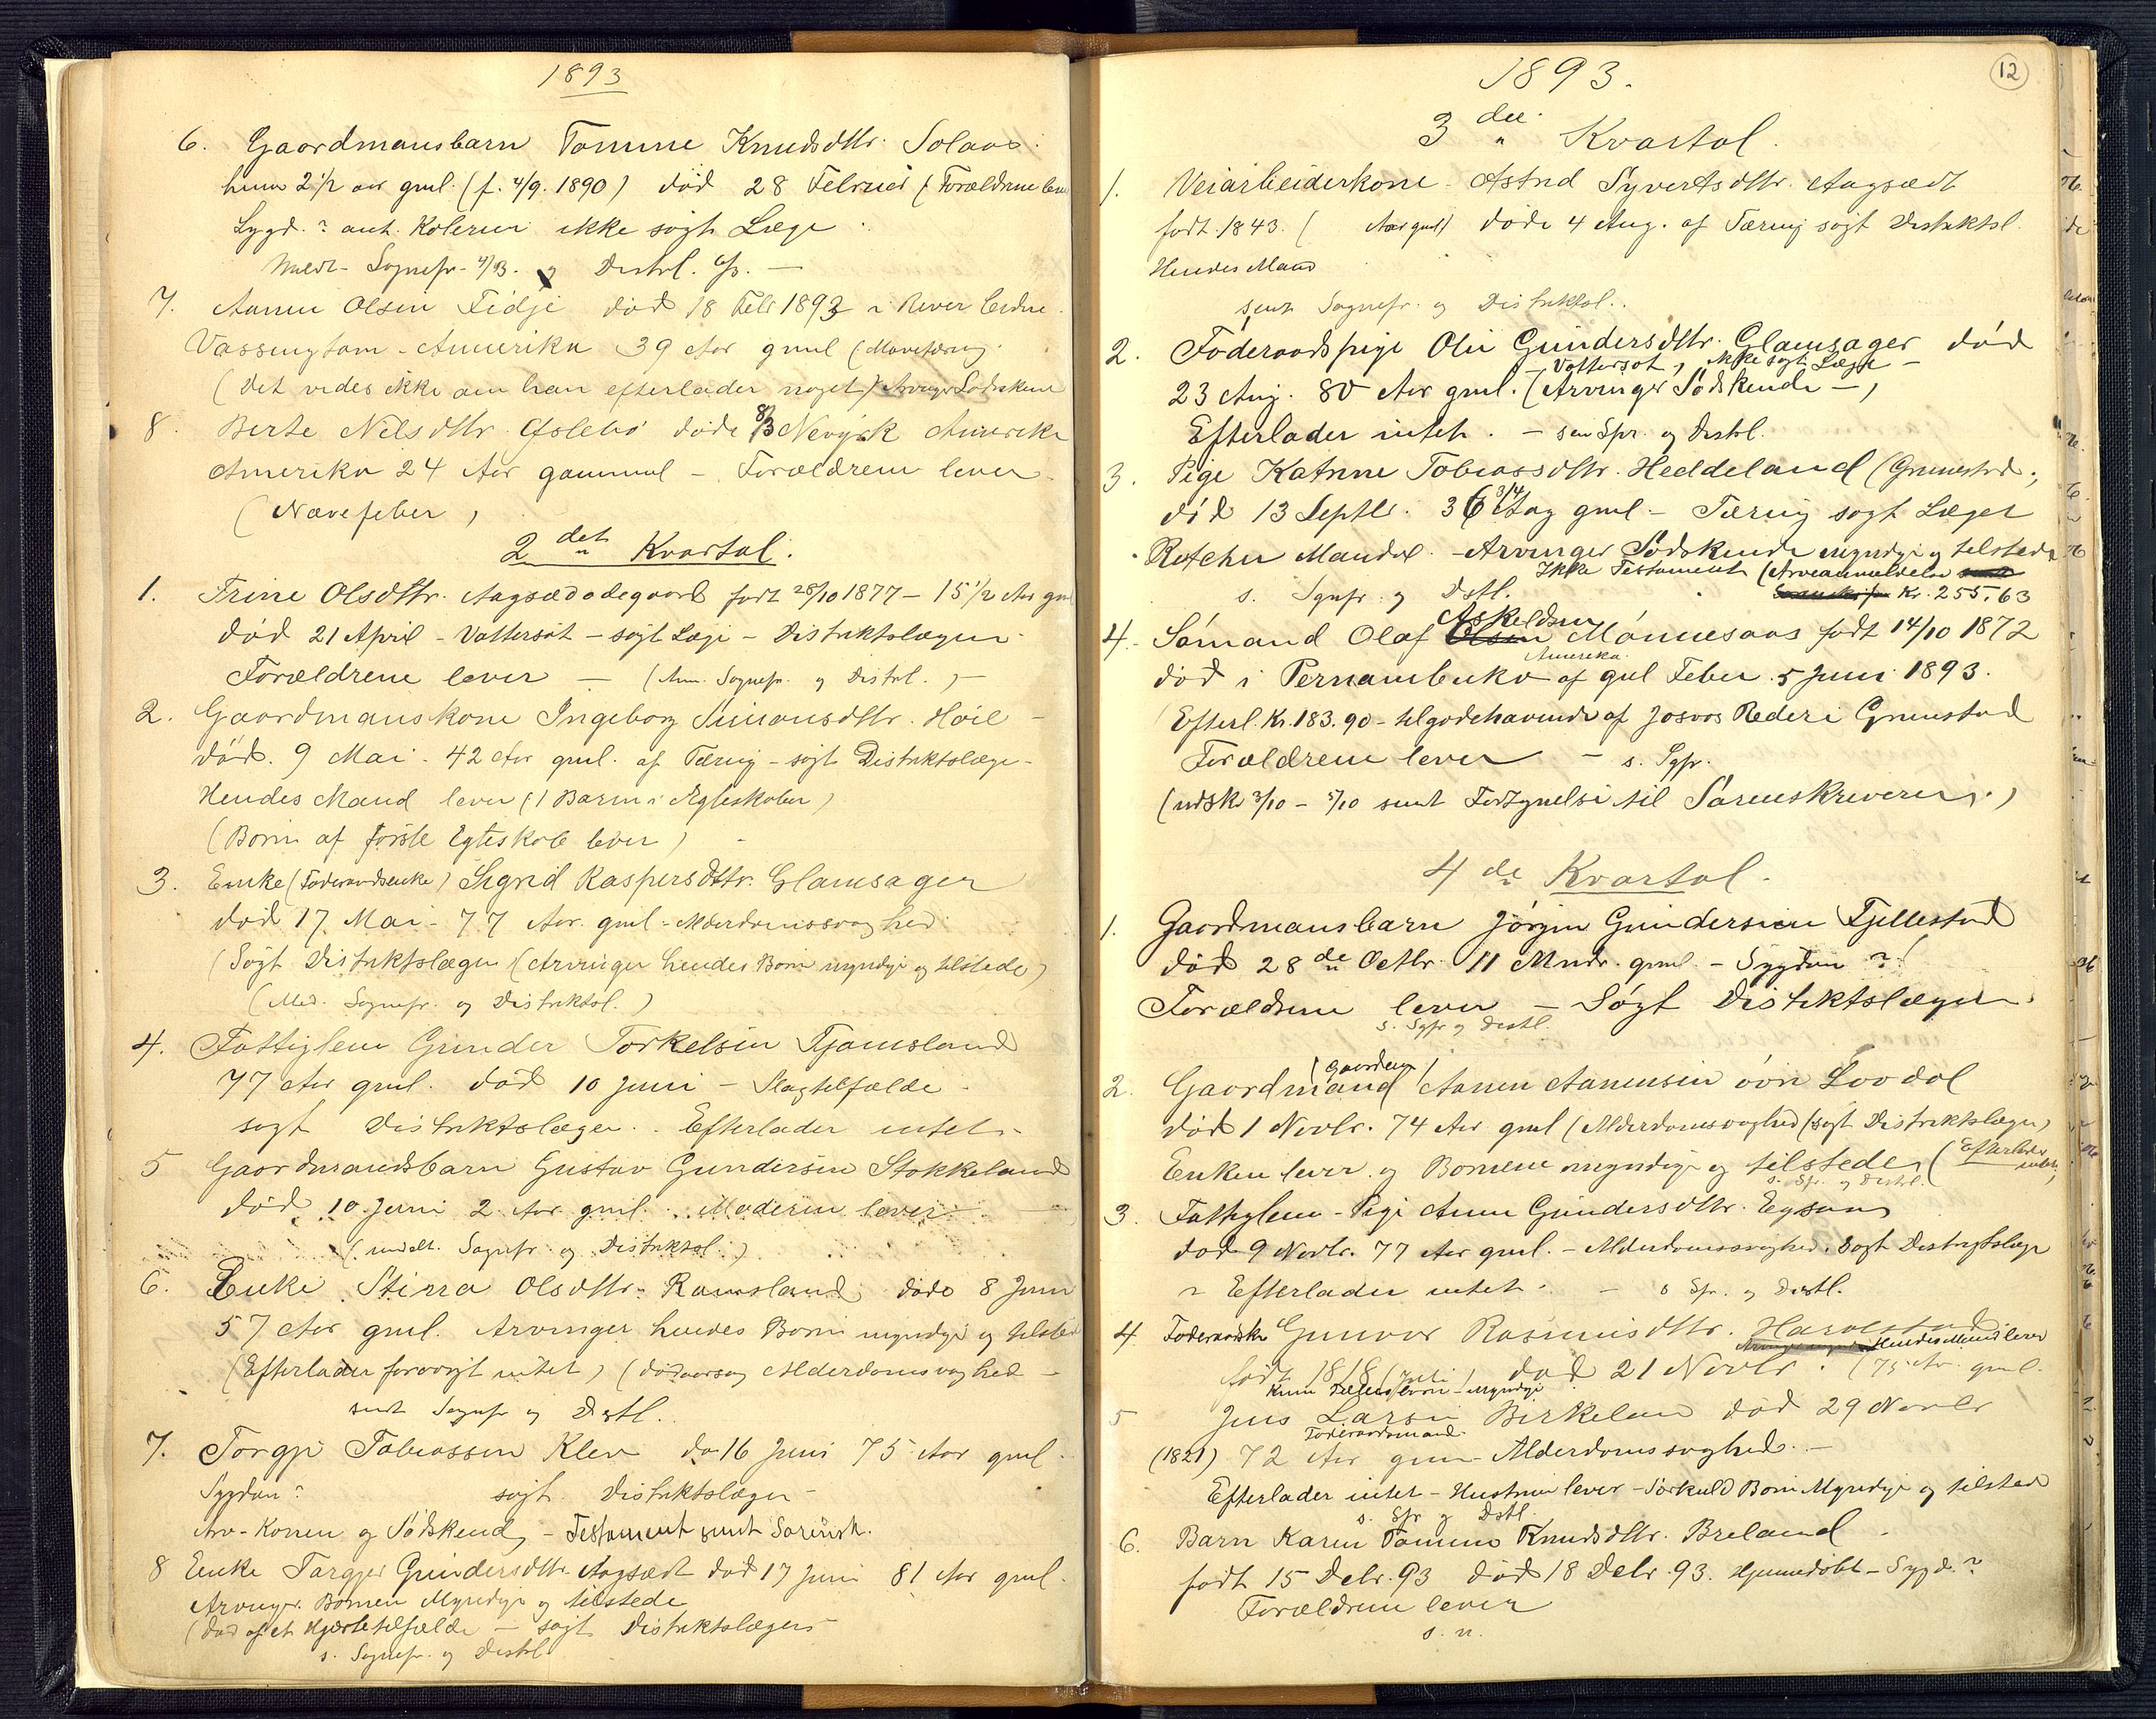 1893
6. Gaardmansbarn Tomine Knudsdttr. Solaas.
hun 2 1/2 aar gml. (f. 4/9. 1890) død 28 Februar (Forældrene lever
Sygd.? ant. Kolerin ikke søgt Læge
Meldt Sognepr. 4/3. og Distrl. 6/3. —
7. Aanen Olsen Fidje død 18 Febr 1893 i River
Vassingtom - Amerika 39 Aar gml (Mavetæring.
(Det vides ikke om han efterlader noget) Arvinger Sødskene
8. Berte Nilsdttr. Øslebø døde 8/3 Nevyork Amerika
Amerika 24 Aar gammel - Forældrene lever.
(Nervefeber)
2det Kvartal.
1. Trine Olsdttr. Aagsædodegaard født 28/10 1877 - 15 1/2 Aar gml
død 21 April - Vattersot - søgt Læge - Distriktslægen -
Forældrene lever — (Anm. Sognepr. og Distrl.) —
2. Gaardmanskone Ingeborg Simonsdttr. Høie -
død. 9 Mai - 42 Aar gml. af Tæring - søgt Distriktslæge -
Hendes Mand lever (1 Barn i Ægteskabet)
(Børn af første Egteskab lever) -
3. Enke (Føderaadsenke) Sigrid Kaspersdttr. Glamsager
død 17 Mai - 77 Aar. gml - Alderdomssvaghed
(Søgt Distriktslægen (Arvinger hendes Børn myndige og tilstede)
(Med. Sognepr. og Distriktsl.)
4. Fattiglem Gunder Torkelsen Tjomsland
77 Aar gml. død 10 Juni - Slagtilfælde -
søgt Distriktslægen. Efterlader intet -
5 Gaardmandsbarn Gustav Gundersen Stokkeland
død 10 Juni 2 Aar gml. Moderen lever
(meldt. Sognepr. og Distriktsl.)
6. Enke Stinra Olsdttr. Ramsland døde 8 Juni
57 Aar gml. Arvinger hendes Børn myndige og tilsted
(Efterlader forøvrigt intet) (dødsaarsag Alderdomsvaghed -
sendt Sognepr og Distl.
7. Torgje Tobiassen Klev dø 16 Juni 75 Aar gml.
Sygdom? søgt. Distriktslægen -
Arv - Konen og Sødskend, - Testament sendt Sorensk.
8 Enke Targjer Gundersdttr. Aagsædt død 17 Juni 81 Aar gml.
Arvinger. Børnen Myndige og tilstede
(død af et Hjærtetilfælde - søgt Distriktslægen -
s. Sognepr. og Distrl
12
1893.
3die Kvartal.
1. Veiarbeiderkone - Astrid Syvertsdttr. Aagsædt
født 1843. ( Aar gml) døde 4 Aug. af Tæring søgt Distriktsl.
Hendes Mand
sent Sognepr. og Distriktsl.
2. Føderaadspige Olu Gundersdttr. Glamsager død
- Vattersot, ikke søgt Læge -
23 Aug. 80 Aar gml. (Arvinger Sødskende -,
Efterlader intet. - sen Spr. og Distrl.
3. Pige Katrine Tobiasdttr. Heddeland (Grimestad.,
død 13 Septbr. 36 3/4 Aag gml - Tæring søgt Læger
Rotcher Mandal. - Arvinger Sødskende myndige og tilstede
Ikke Testament (Arveanmeldelse
s. Sgnpr. og Dstl. Kr. 255.63
4. Sømand Olaf Askeldsen Monnesaas født 14/10 1872
Amerika.
død i Pernambuko af gul Feber 5 Juni 1893.
(Efterl. Kr. 183.90 - tilgodehavende af Josvos Rederi Grimstad
Forældrene lever - s. Sgpr.
(udsk 3/10 - 5/10 sent Fortegnelse til Sorenskriveren.)
4de Kvartal.
1. Gaardmansbarn Jørgen Gundersen Fjellestad
død 28de Octbr. 11 Mndr. gml. - Sygdom?
Forældrene lever - Søgt Distriktslægen.
s. Sgpr og Distl.
(Gaardens)
2. Gaardmand Aanen Aanensen øvre Loodal
død 1 Novbr. 74 Aar gml (Alderdomsvaghed (søgt Distriktslægen)
Enken lever og Børnene myndige og tilstede, (Efterlader intet)
s. Spr. og Distrl.
3. Fattiglem - Pige Anne Gundersdttr. Egsaas
død 9 Novbr. 77 Aar gml. - Alderdomssvaghed. Søgt Distriktslæge
- Efterlader intet - - s Spr. og Distl.
4. Føderaadsko Gunvor Rasmusdttr. Harvestad
Hendes Mand lever
født 1818 (Juli) død 21 Novbr. (75 Aar gml.
Kun Fælles børn - Myndige
5 Jens Larsen Birkeland død 29 Novbr
Føderaadsmand.
(1821) 72 Aar gml - Alderdomssvaghed. -
Efterlader intet - Hustruen lever - Særkuld Børn Myndige og tilstede
s. Spr og Dstl.
6. Barn Karen Tomine Knudsdttr. Breland
født 15 Debr. 93 død 18 Debr. 93. Hjemmedøbt - Sygd.?
Forældrene lever
s. n.